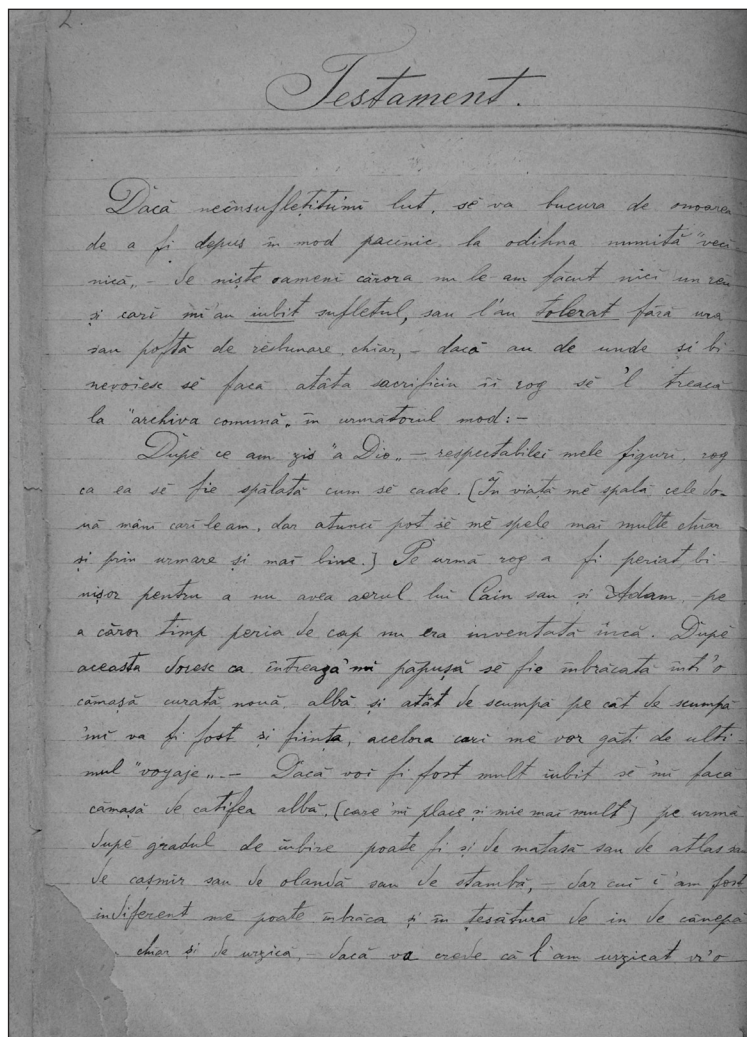 2.
Testament.
Dacă neînsuflețitumi lut, sĕ va bucura de onoarea
de a fi depus în mod pacinic la odihna numită "veci-
nică„ – de niște oameni cărora nu le-am făcut nici un rĕu
și cari mi'au iubit sufletul, sau l'au tolerat fără ura
sau poftă de rĕsbunare chiar, – dacă au de unde și bi-
nevoiesc sĕ facă atâta sacrificiu îi rog sĕ 'l treacă
la "archiva comună„ în următorul mod: –
Dupĕ ce am zis "a Dio„ – respectabilei mele figuri, rog
ca ea sĕ fie spălată cum sĕ cade. (În viață mĕ spală cele do-
uă mâni cari le am, dar atunci pot sĕ mĕ spele mai multe chiar
și prin urmare și mai bine.) Pe urmă rog a fi periat bi-
nișor pentru a nu avea aerul lui Cain sau și Adam – pe
a căror timp peria de cap nu era inventată încă. Dupĕ
aceasta doresc ca întreagă'mi păpușă sĕ fie îmbrăcată înti'o
cămașă curată nouă, albă și atât de scumpă pe cât de scumpă
'mi va fi fost și ființa, acelora cari mĕ vor găti de ulti-
mul "voyaje„. – Dacă voi fi fost mult iubit sĕ 'mi facă
cămașă de catifea albă, (care 'mi place și mie mai mult) pe urmă
dupĕ gradul de iubire poate fi și de mătasă sau de atlas sau
de casmir sau de olandă sau de stambă, – dar cui i'am fost
indiferent mĕ poate îmbrăca și în țesătură de in de cânepă
chiar și de urzică, – dacă va crede că l'am urzicat vr'o